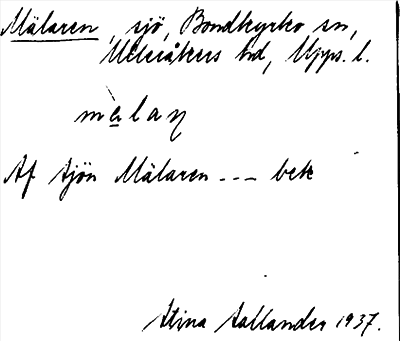 Mälaren, sjö, Bondkyrko sn,
Ulleråkers hd, Upps. l.
mälaṛ
Af sjön Mälaren --- bek
Stina Sallander 1937.